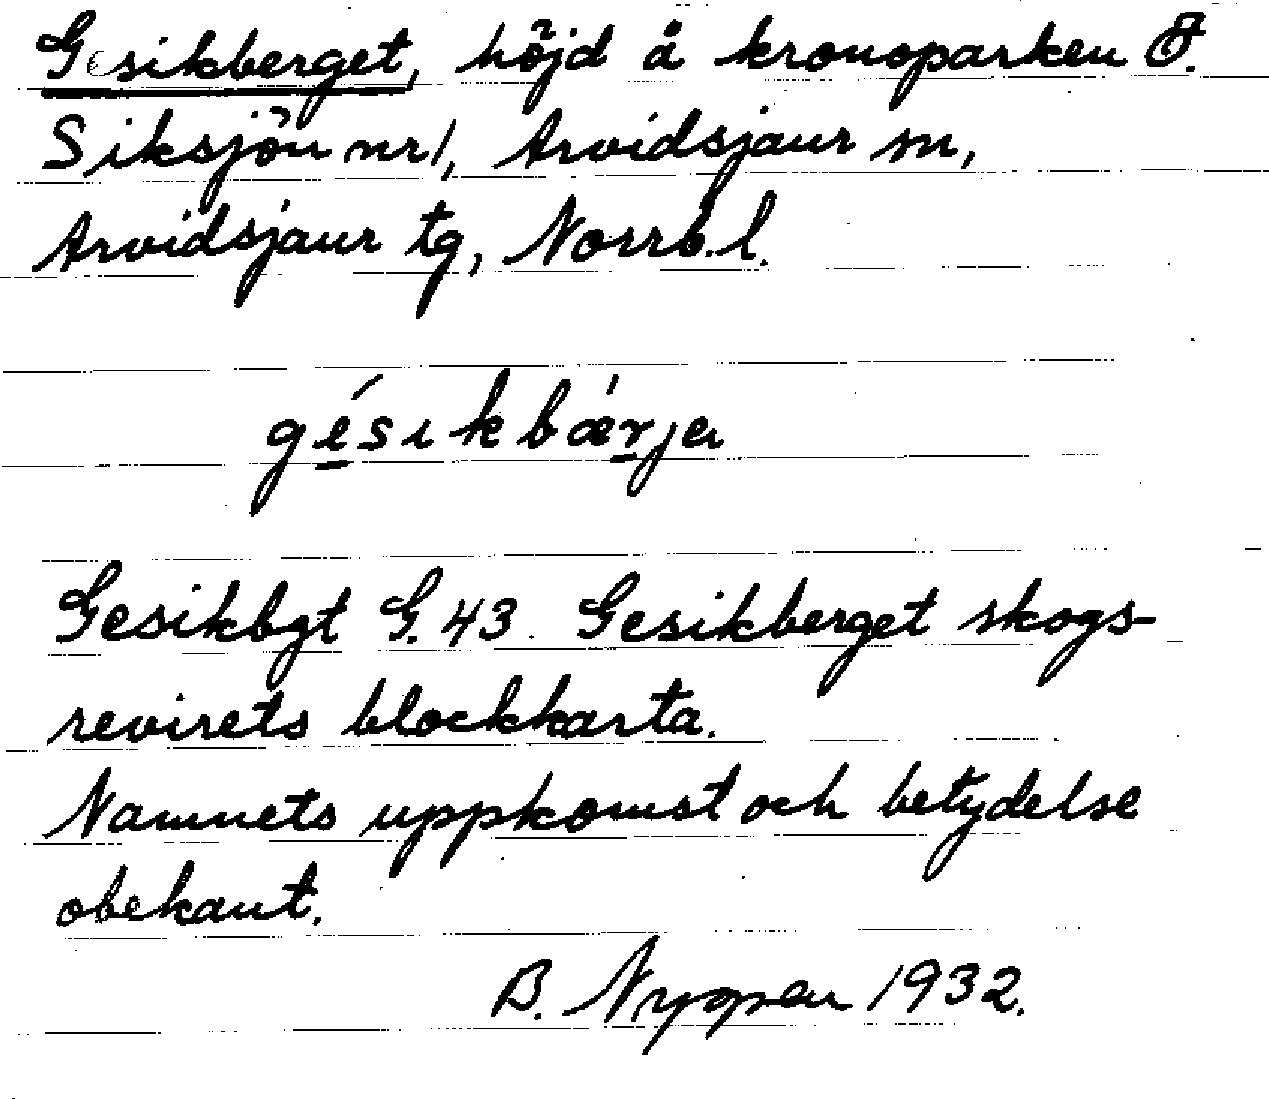 Gesikberget, höjd å kronoparken Ö.
Siksjön nr 1, Arvidsjaur sn,
Arvidsjaur tg, Norrb. l.
gésikbærja
Gesikbgt G. 43. Gesikberget skogs-
revirets blockkarta.
Namnets uppkomst och betydelse
obekant.
B. 1932.